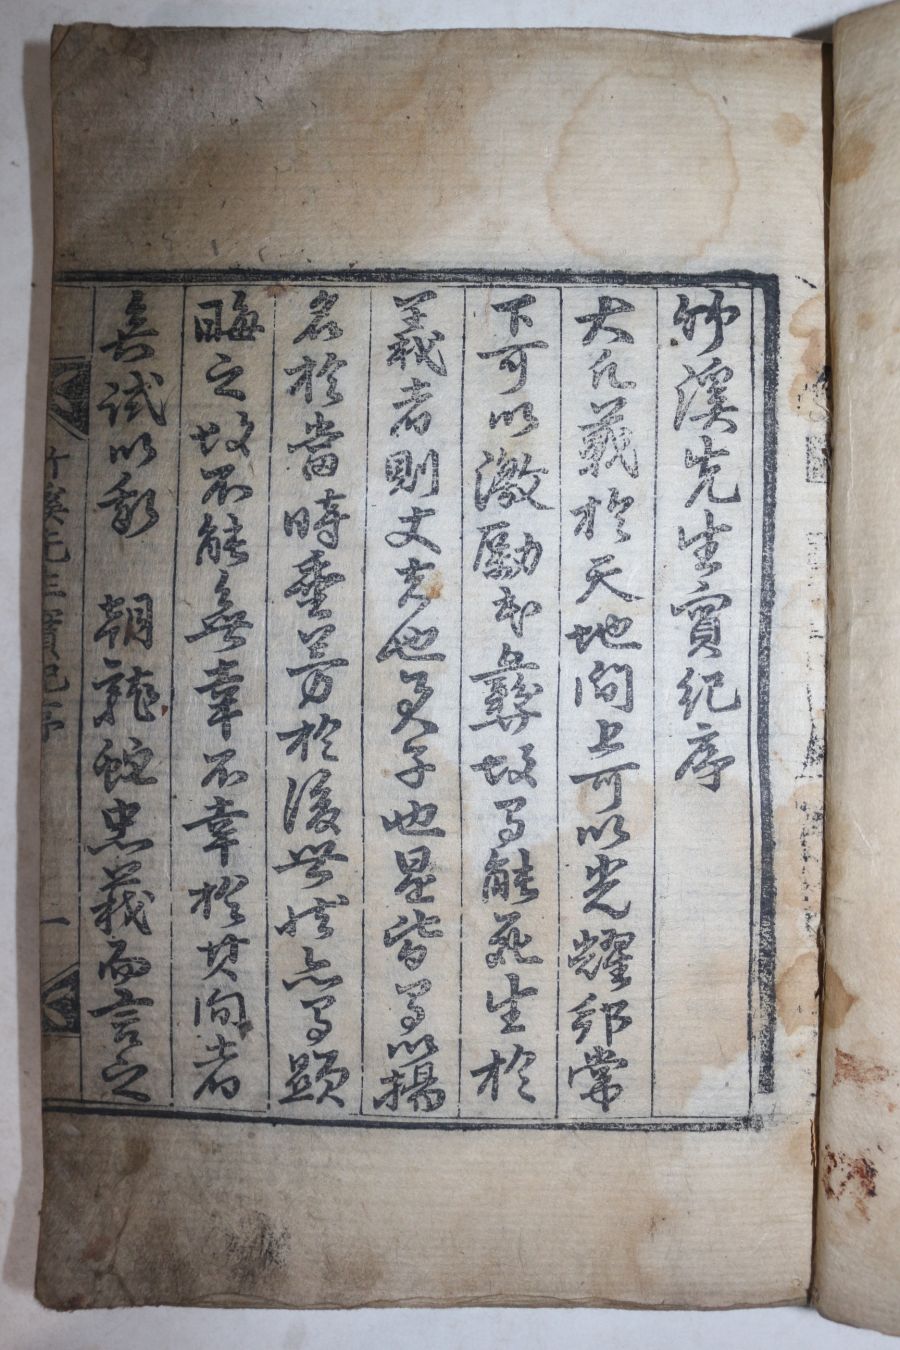 竹溪先生實紀序
大凡義於天地間上可以光耀邦常
下可以激勵民彝故能死生於
義者則丈夫也男子也是皆可以揚
名於當時垂芳於後世然亦有顯
晦之故不能無幸不幸於其間者
矣試以我 朝龍蛇忠義而言之
竹溪先生實紀序
一